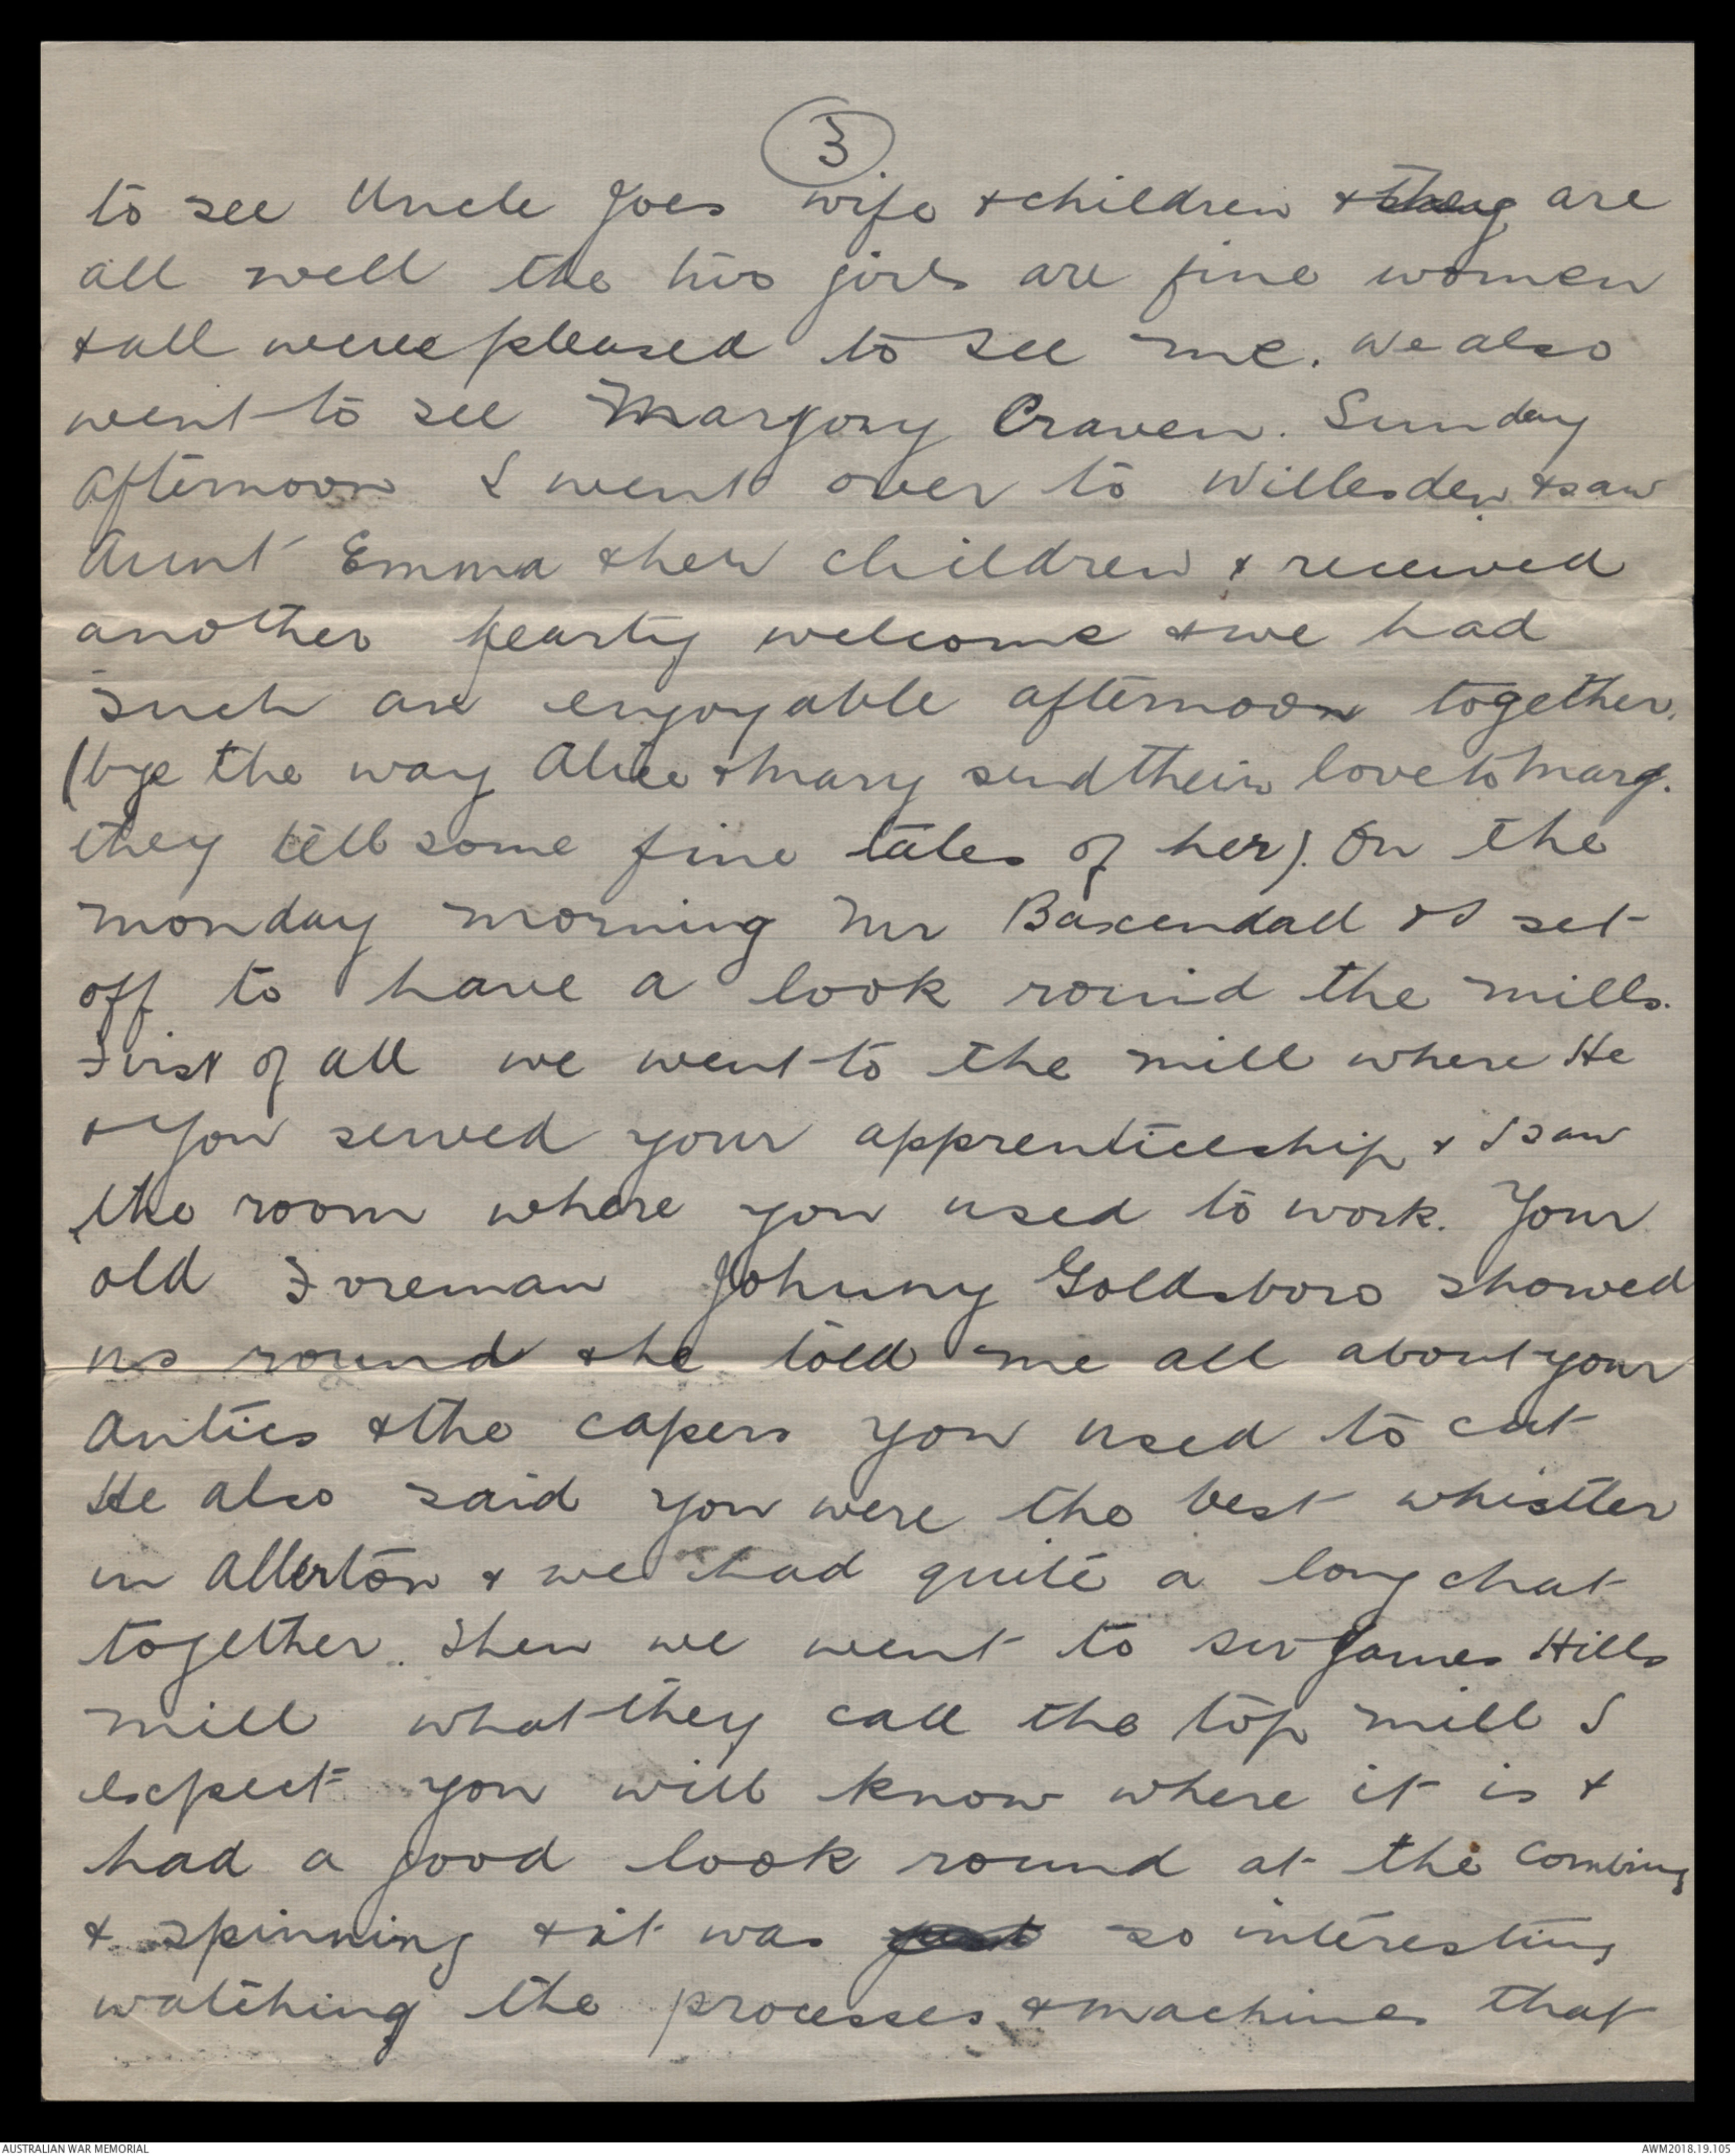 3
to see Uncle Joes wife & children & they are
all well the two girls are fine women
& all were pleased to see me. We also
went to see Margory Craven. Sunday
afternoon I went over to Willesden & saw
Aunt Emma & her children & received
another hearty welcome & we had
such an enjoyable afternoon together.
(bye the way Alice & Mary send their love to Marg.
they tell some fine tales of her). On the
Monday morning Mr Baxendall & I set
off to have a look round the mills.
First of all we went to the mill where He
& You served your apprenticeship & I saw
the room where you used to work. Your
old Foreman Johnny Goldsboro showed
us round & he told me all about your
antics & the capers you used to cut
He also said you were the best whistler
in Allerton & we had quite a long chat
together. Then we went to Sir James Hills
mill what they call the top mill I
expect you will know where it is &
had a good look round at the Combing
& spinning & it was just so interesting
watching the processes & machines that
AUSTRALIAN WAR MEMORIAL
AWM2018.19.105